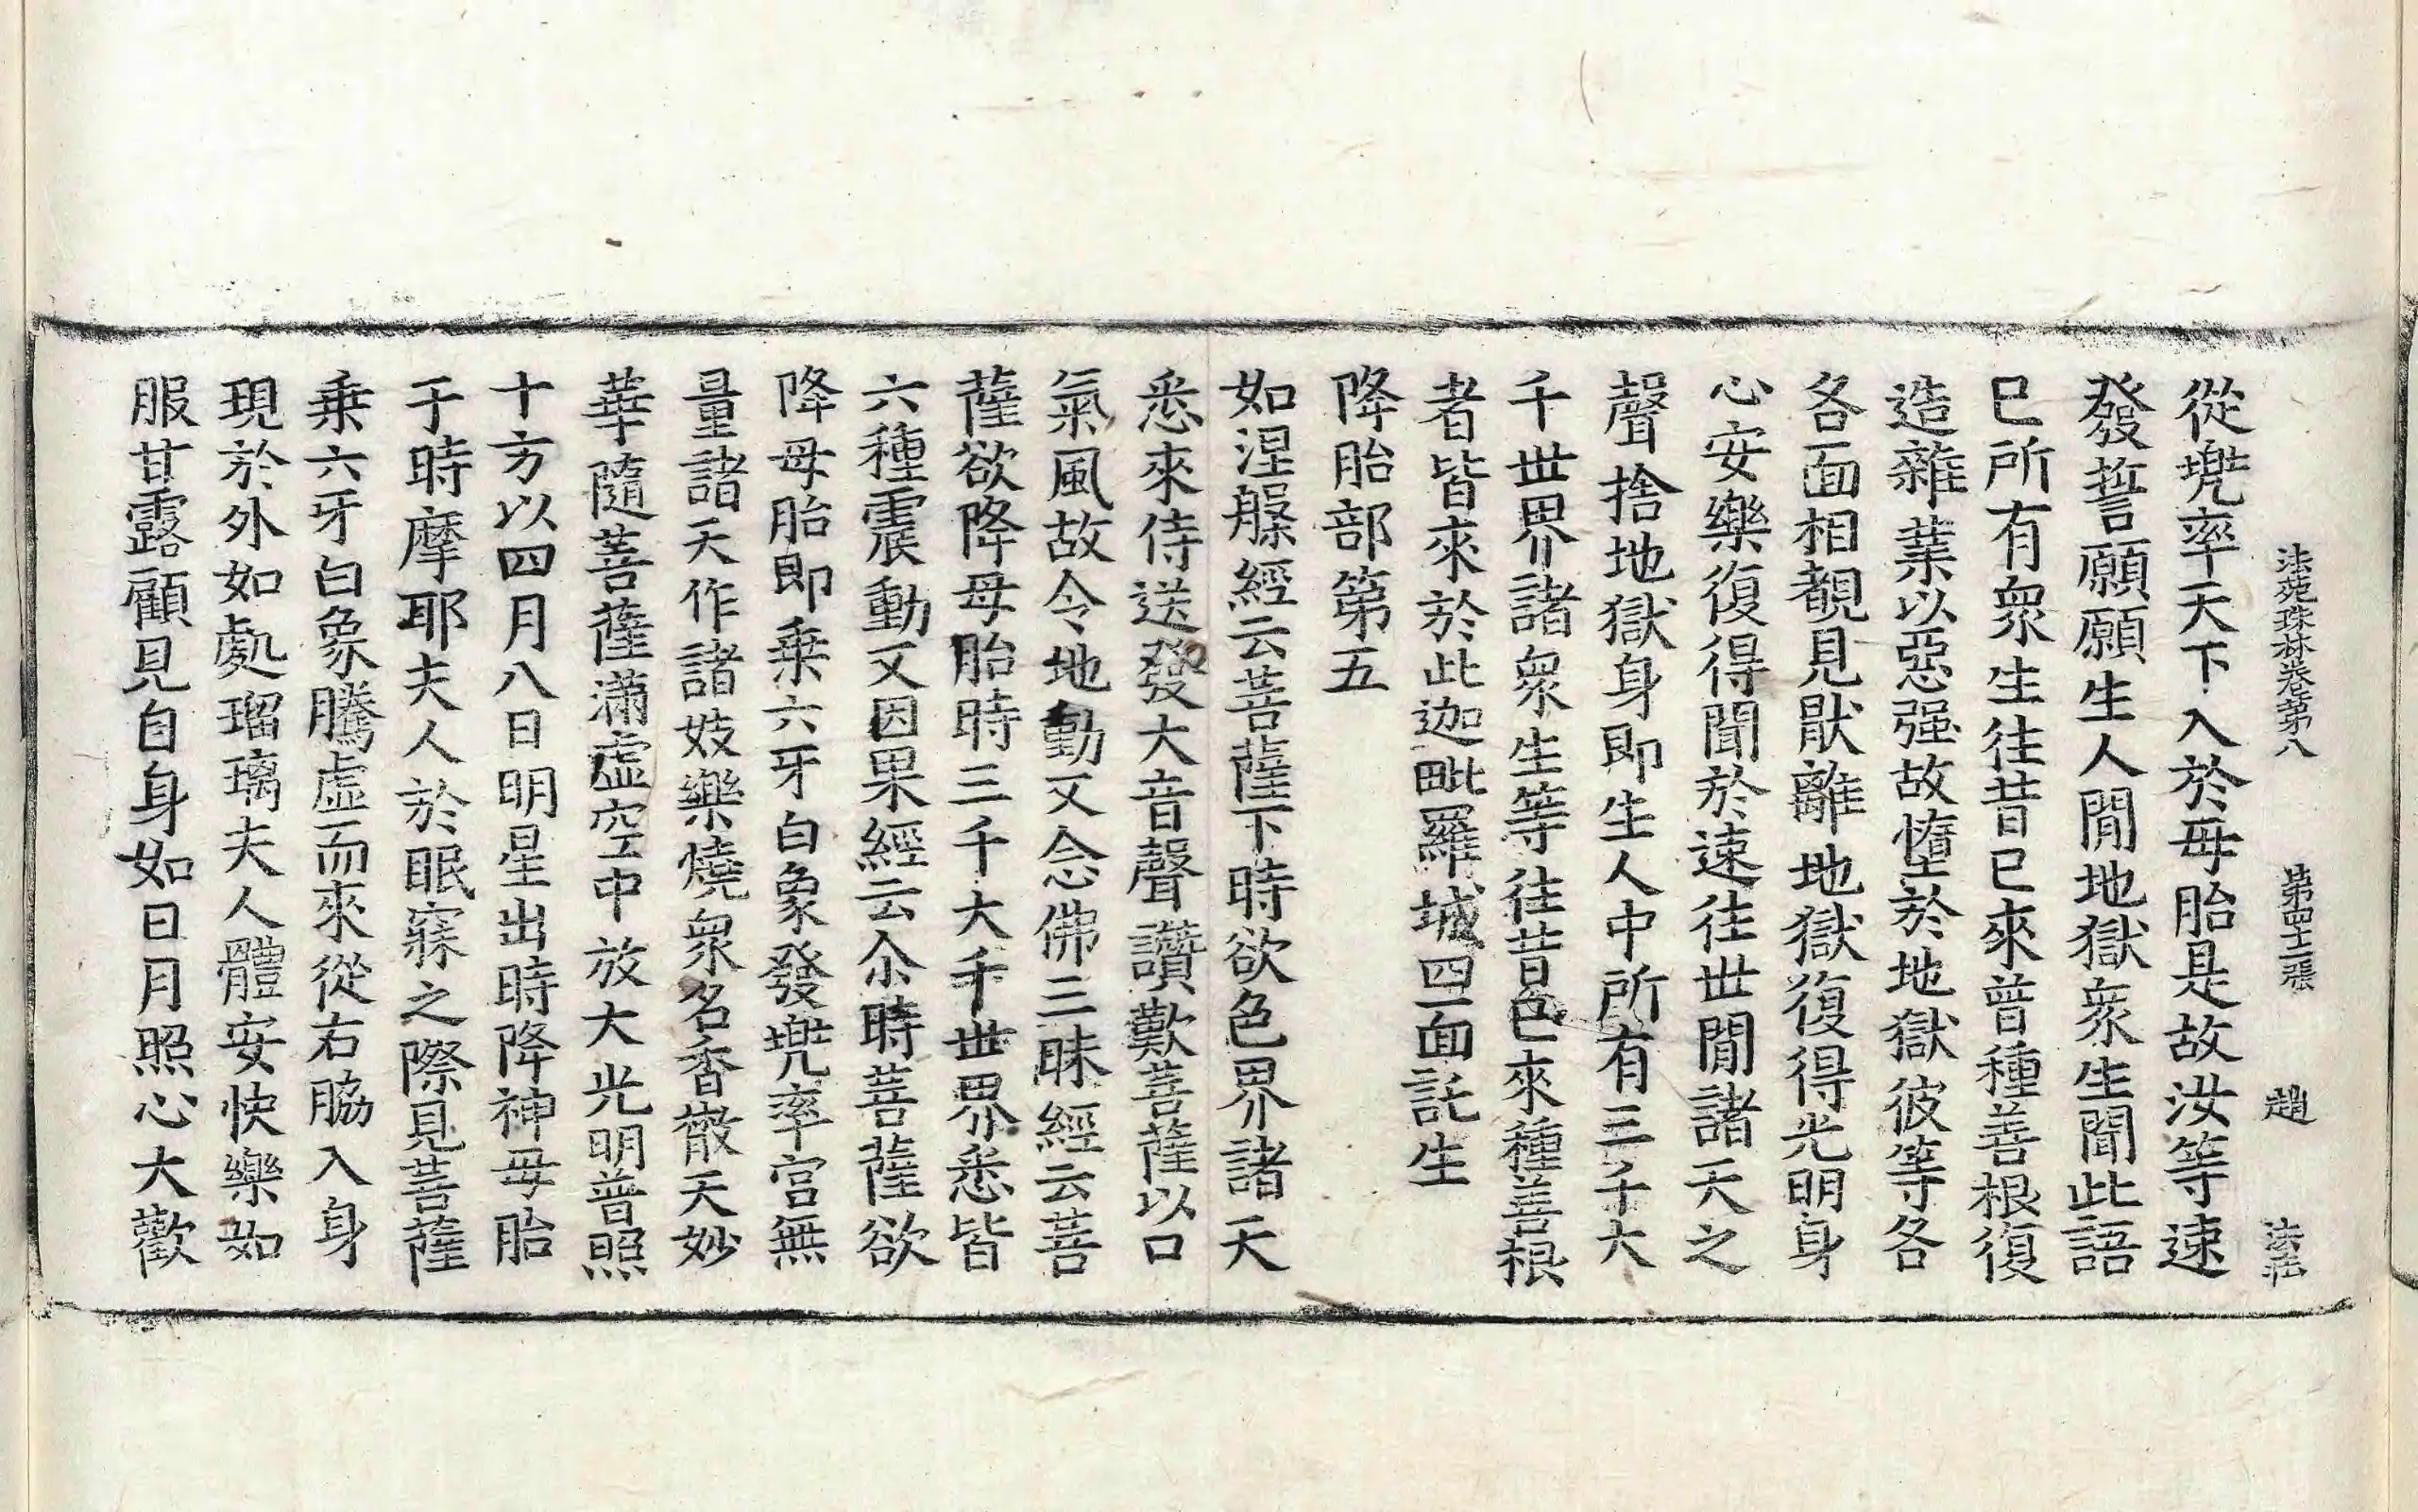 法苑珠林卷第八　第四十二張　趙　法
從兠率天下入於母胎是故汝等速
發誓願願生人間地獄衆生聞此語
巳所有衆生往昔巳來普種善根復
造雜業以惡强故墮於地獄彼等各
各面相覩見猒離地獄復得光明身
心安樂復得聞於速往世間諸天之
聲捨地獄身即生人中所有三千大
千世界諸衆生等往昔巳來種善根
者皆來於此迦毗羅城四面託生
降胎部第五
如涅槃經云菩薩下時欲色界諸天
悉來侍送發大音聲讚歎菩薩以口
氣風故令地動又念佛三昧經云菩
薩欲降母胎時三千大千世界悉皆
六種震動又因果經云尒時菩薩欲
降母胎即乗六牙白象發兠率宮無
量諸天作諸妓樂燒衆名香散天妙
華隨菩薩滿虛空中放大光明普照
十方以四月八日明星出時降神母胎
于時摩耶夫人於眠寤之際見菩薩
乗六牙白象騰虛而來從右脇入身
現於外如處瑠璃夫人體安快樂如
服甘露顧見自身如日月照心大歡